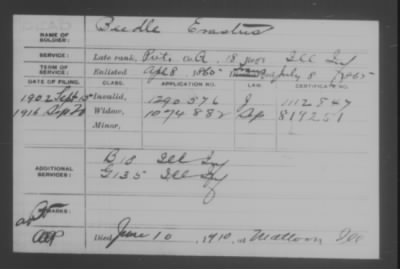 NAME OF SOLDIER: Beedle Erastus
SERVICE: Late rank, Pvt. Co. A. 18 Ill Inf
TERM OF SERVICE: Enlisted Apl 8, 1865 July 8, 1865
DATE OF FILING. CLASS. APPLICATION NO. LAW. CERTIFICATE NO.
1902 Sept 15 Invalid, 1290.576 J 1112.847
1916 Widow, 1074.882 819251
Minor,
ADDITIONAL SERVICES: B 18 Ill Inf
G 135 Ill Inf
REMARKS:
Died June 10, 1910, at Mattoon Ill